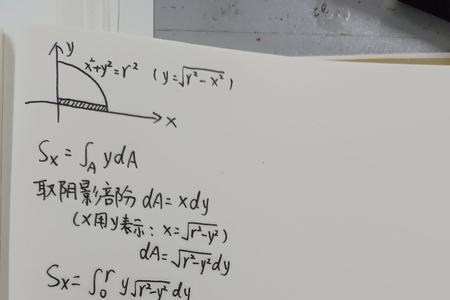 y
x²+y²=r² (y=√(r²-x²))
x
Sx=∫_A ydA
取阴影部分 dA=xdy
(x用y表示: x=√(r²-y²))
dA=√(r²-y²)dy
Sx=∫₀^r y√(r²-y²)dy